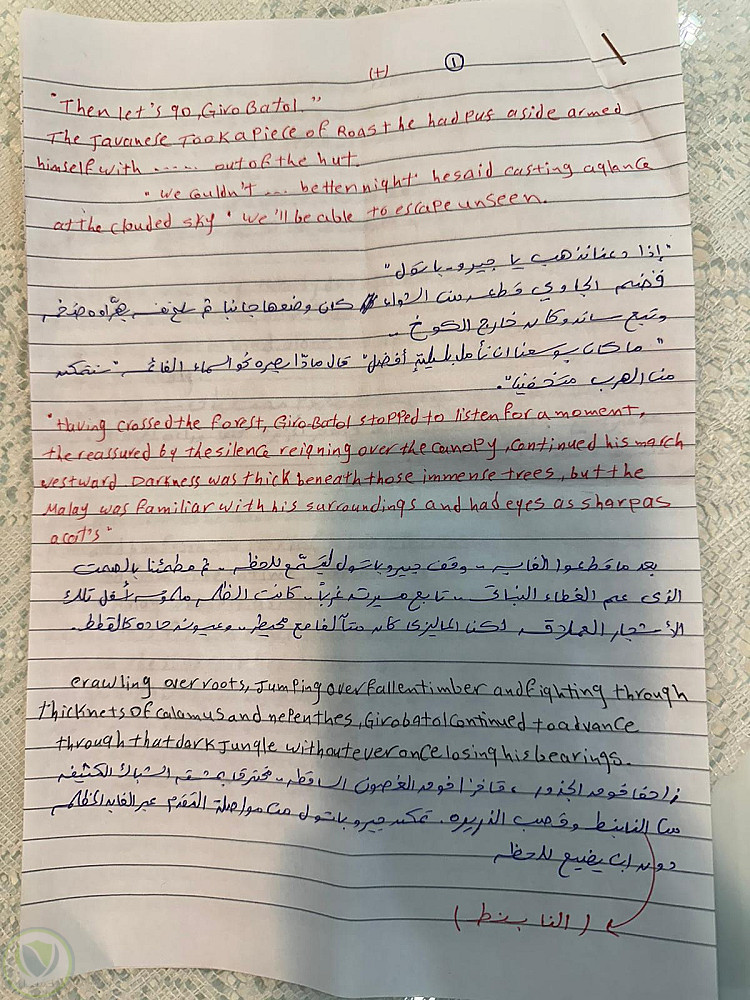 (+) ①
"Then let's go, Giro Batol."
The Javanese Took a piece of Roast he had put aside armed
himself with ...... out of the hut.
"we couldn't .... better night" he said casting a glance
at the clouded sky "we'll be able to escape unseen.
"إذا دعنا نذهب يا جيرو-باتول"
قضم الجاوي قطعه من الشواء كان وضعها جانبا ثم سلح نفسه بهراوه ضخمه
وتبع ساندوكان خارج الكوخ ..
"ما كان بوسعنا ان نأمل بليلةٍ أفضل" قال مادًا بصره نحو السماء الغائمه "سنتمكن
من الهرب متخفين".
"Having crossed the forest, Giro-Batol stopped to listen for a moment,
the reassured by the silence reigning over the canopy, continued his march
westward Darkness was thick beneath those immense trees, but the
Malay was familiar with his surroundings and had eyes as sharp as
a cat's"
بعد ما قطعوا الغابه .. وقف جيرو باتول ليتسمّع للحظه .. ثم مطمئنا بالصمت
الذى عم الغطاء النباتى .. تابع مسيرته غرباً .. كانت الظلمه أسفل تلك
الأشجار العملاقه لكن الماليزى كان متآلفا مع محيطه .. وعيونه حاده كالقطط.
crawling over roots, Jumping over fallen timber and fighting through
thicknets of calamus and nepenthes, Giro batol continued to advance
through that dark Jungle without ever once losing his bearings.
زاحفا فوق الجذور، قافزا فوق الغصون الساقطه .. مخترقا بمشقه الشباك الكثيفه
من النابنط وقصب الذريره. تمكن جيرو باتول من مواصلة التقدم عبر الغابه المظلمه
دون ان يضيع للحظه
(النابنط)